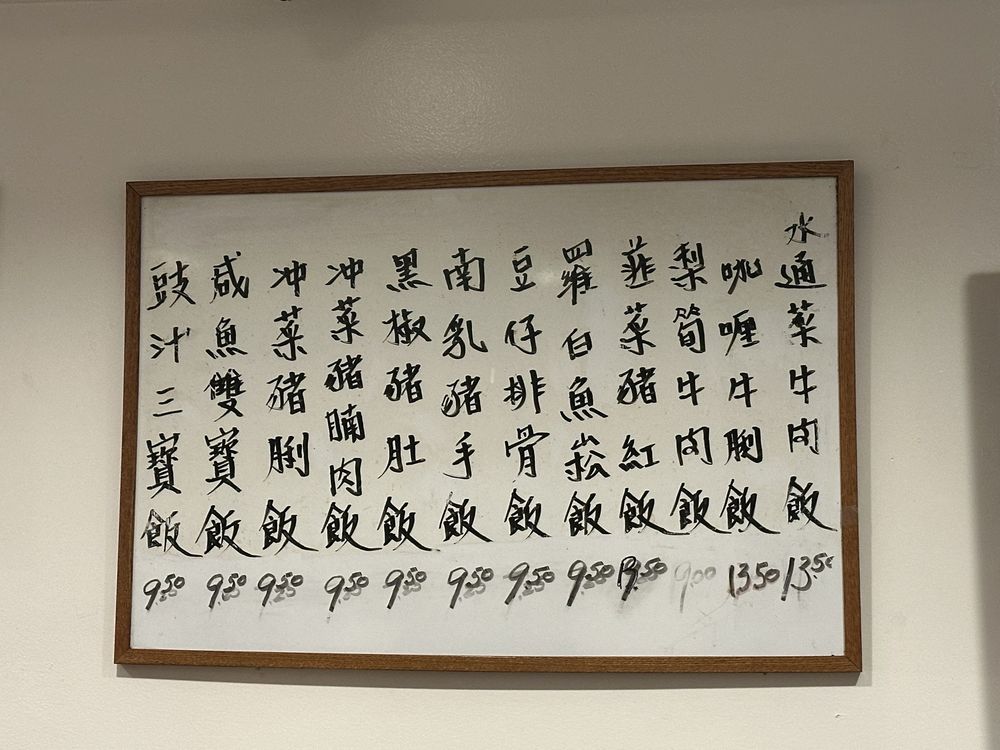 水通菜牛肉飯 13.50
咖喱牛脷飯 13.50
梨筍牛肉飯 9.00
韮菜豬紅飯 13.50
羅白魚崧飯 9.50
豆仔排骨飯 9.50
南乳豬手飯 9.50
黑椒豬肚飯 9.50
冲菜豬腩肉飯 9.50
冲菜豬脷飯 9.50
咸魚雙寶飯 9.50
豉汁三寶飯 9.50